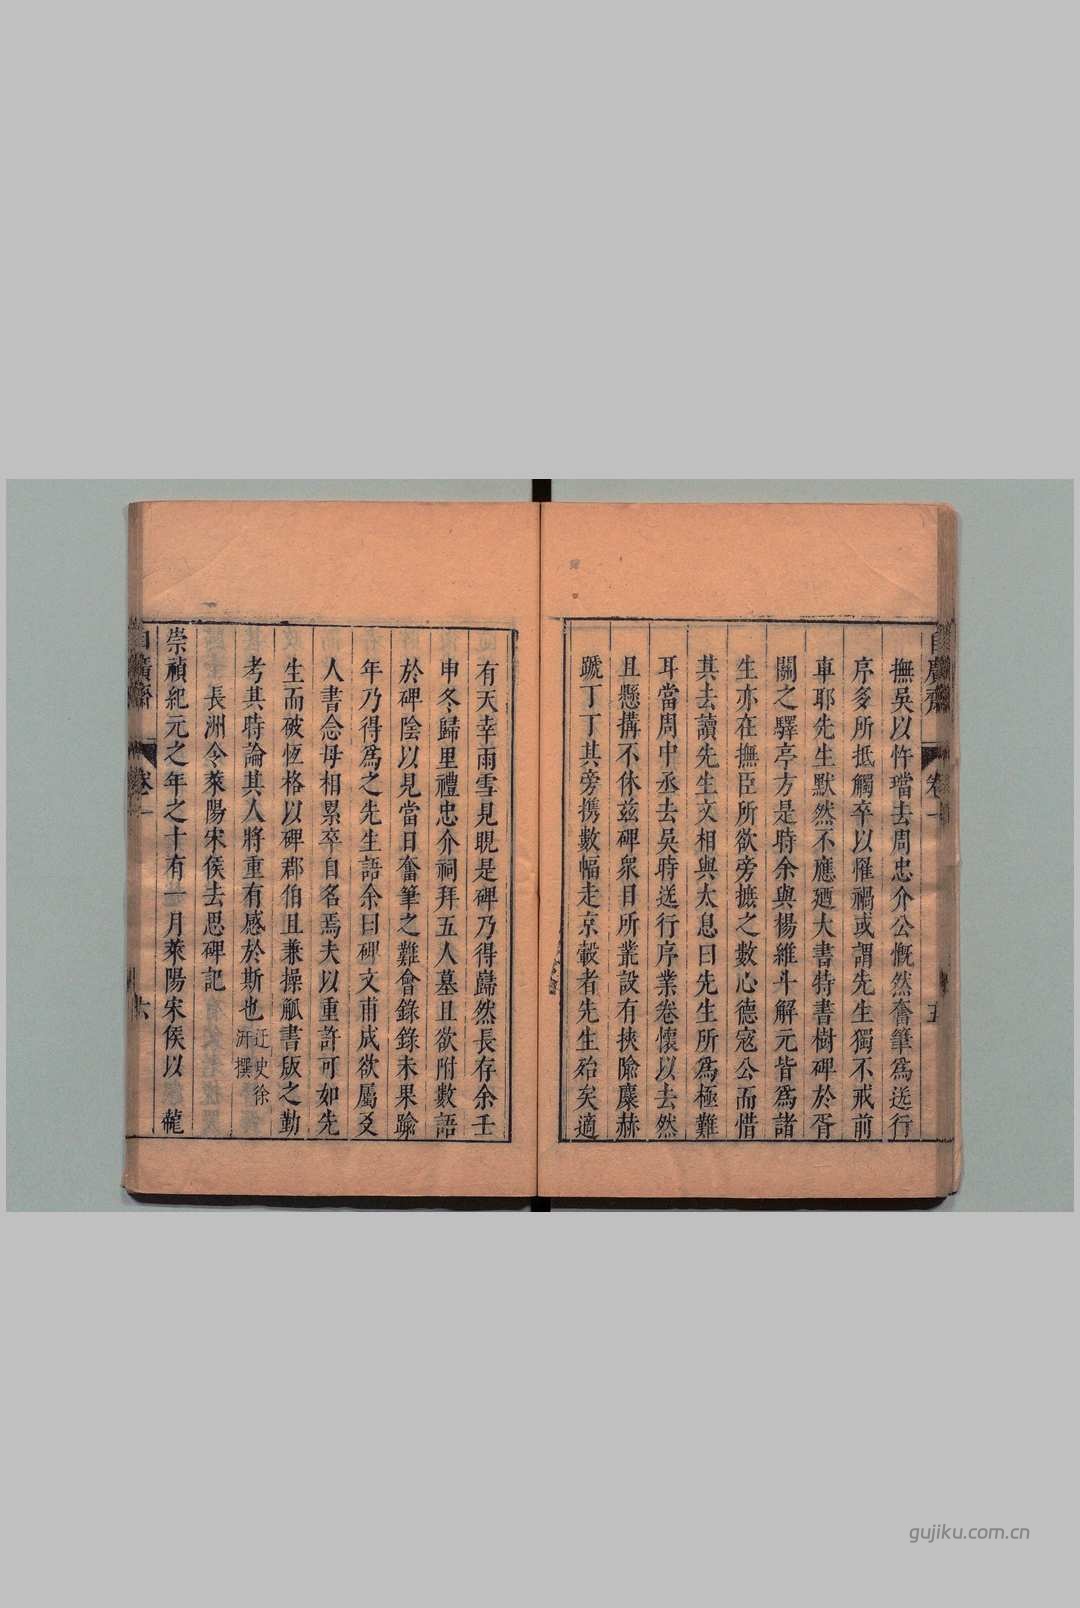 自廣齋
卷一
五
撫吳以忤璫去周忠介公慨然奮筆爲送行
序多所抵觸卒以罹禍或謂先生獨不戒前
車耶先生默然不應廼大書特書樹碑於胥
關之驛亭方是時余與楊維斗解元皆爲諸
生亦在撫臣所欲旁摭之數心德寇公而惜
其去讀先生文相與太息曰先生所爲極難
耳當周中丞去吳時送行序業卷懷以去然
且懸搆不休兹碑衆目所叢設有挾隃麋赫
蹏丁丁其旁携數幅走京轂者先生殆矣適
有天幸雨雪見晛是碑乃得巋然長存余壬
申冬歸里禮忠介祠拜五人墓且欲附數語
於碑陰以見當日奮筆之難會錄錄未果踰
年乃得爲之先生語余曰碑文甫成欲屬爻
人書念毋相累卒自名焉夫以重許可如先
生而破恆格以碑郡伯且兼操觚書版之勤
考其時論其人將重有感於斯也
迂史徐
汧撰
長洲令萊陽宋侯去思碑記
崇禎紀元之年之十有一月萊陽宋侯以蘢
自廣齋
卷一
六
gujiku.com.cn